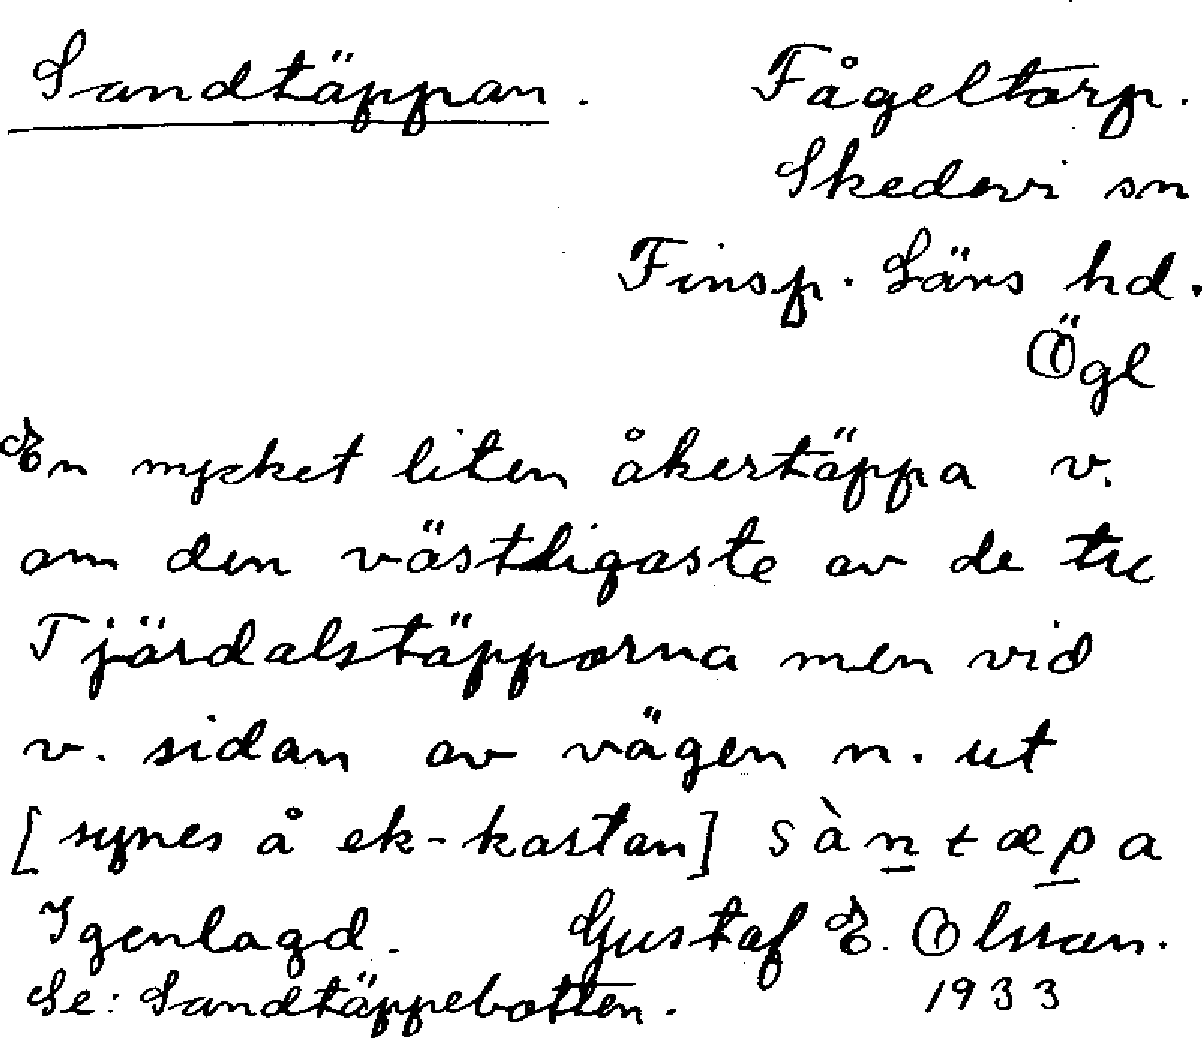 Sandtäppan. Fågeltorp.
Skedevi sn
Finsp. Läns hd.
Ögl
En mycket liten åkertäppa v.
om den västligaste av de tre
Tjärdalstäpporna men vid
v. sidan av vägen n. ut
[synes å ek-kartan] sàntæpa
Igenlagd. Gustaf E. Olsson.
Se: Sandtäppebotten. 1933